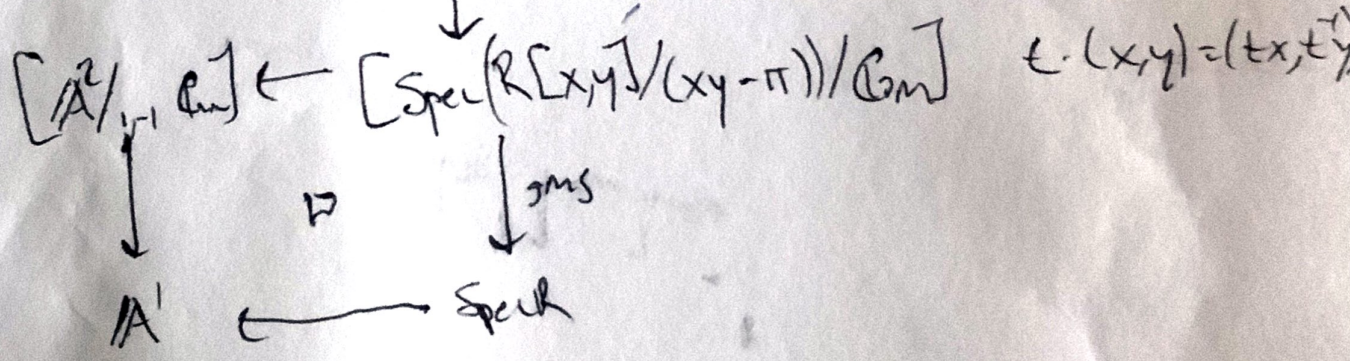 [𝔸²/₁,₋₁ 𝔾ₘ] ← [Spec(R[x,y]/(xy-π))/𝔾ₘ] t·(x,y)=(tx,t⁻¹y)
□ gms
𝔸¹ ← Spec R